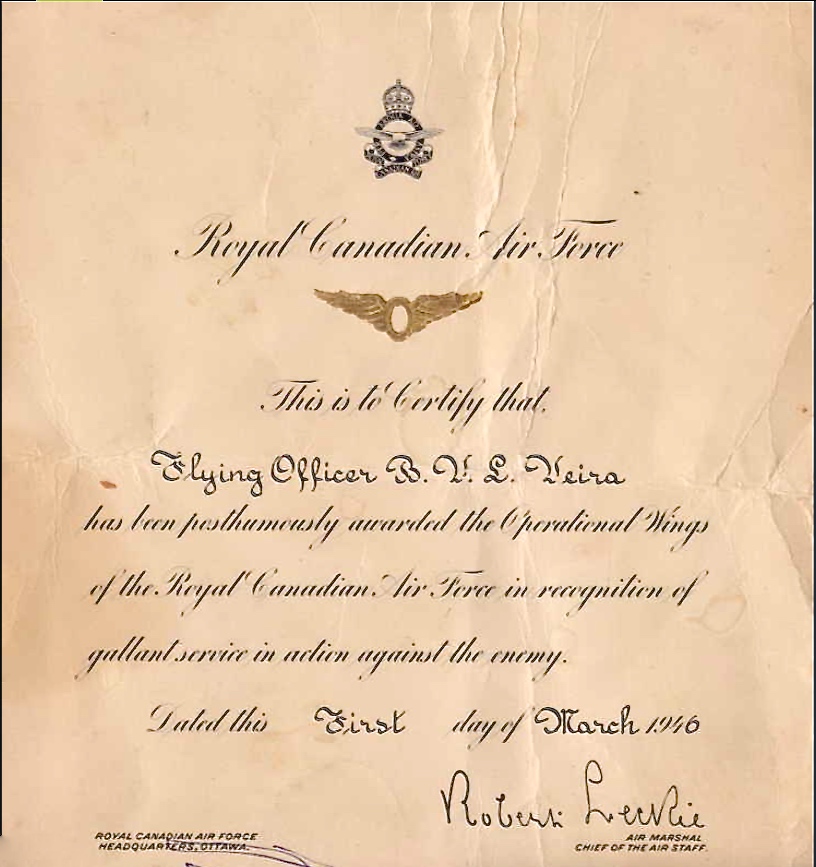 Royal Canadian Air Force
This is to Certify that
Flying Officer B. V. L. Veira
has been posthumously awarded the Operational Wings
of the Royal Canadian Air Force in recognition of
gallant service in action against the enemy.
Dated this First day of March 1946
Robert Leckie
ROYAL CANADIAN AIR FORCE
HEADQUARTERS, OTTAWA.
AIR MARSHAL
CHIEF OF THE AIR STAFF.